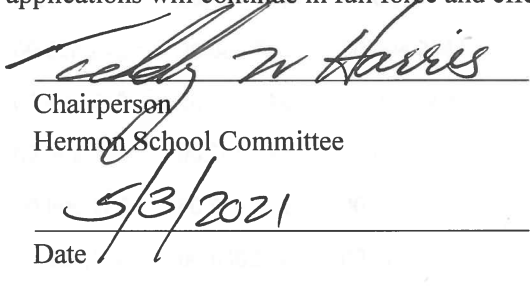 applications will continue in full force and effe
Teddy W Harris
Chairperson
Hermon School Committee
5/3/2021
Date